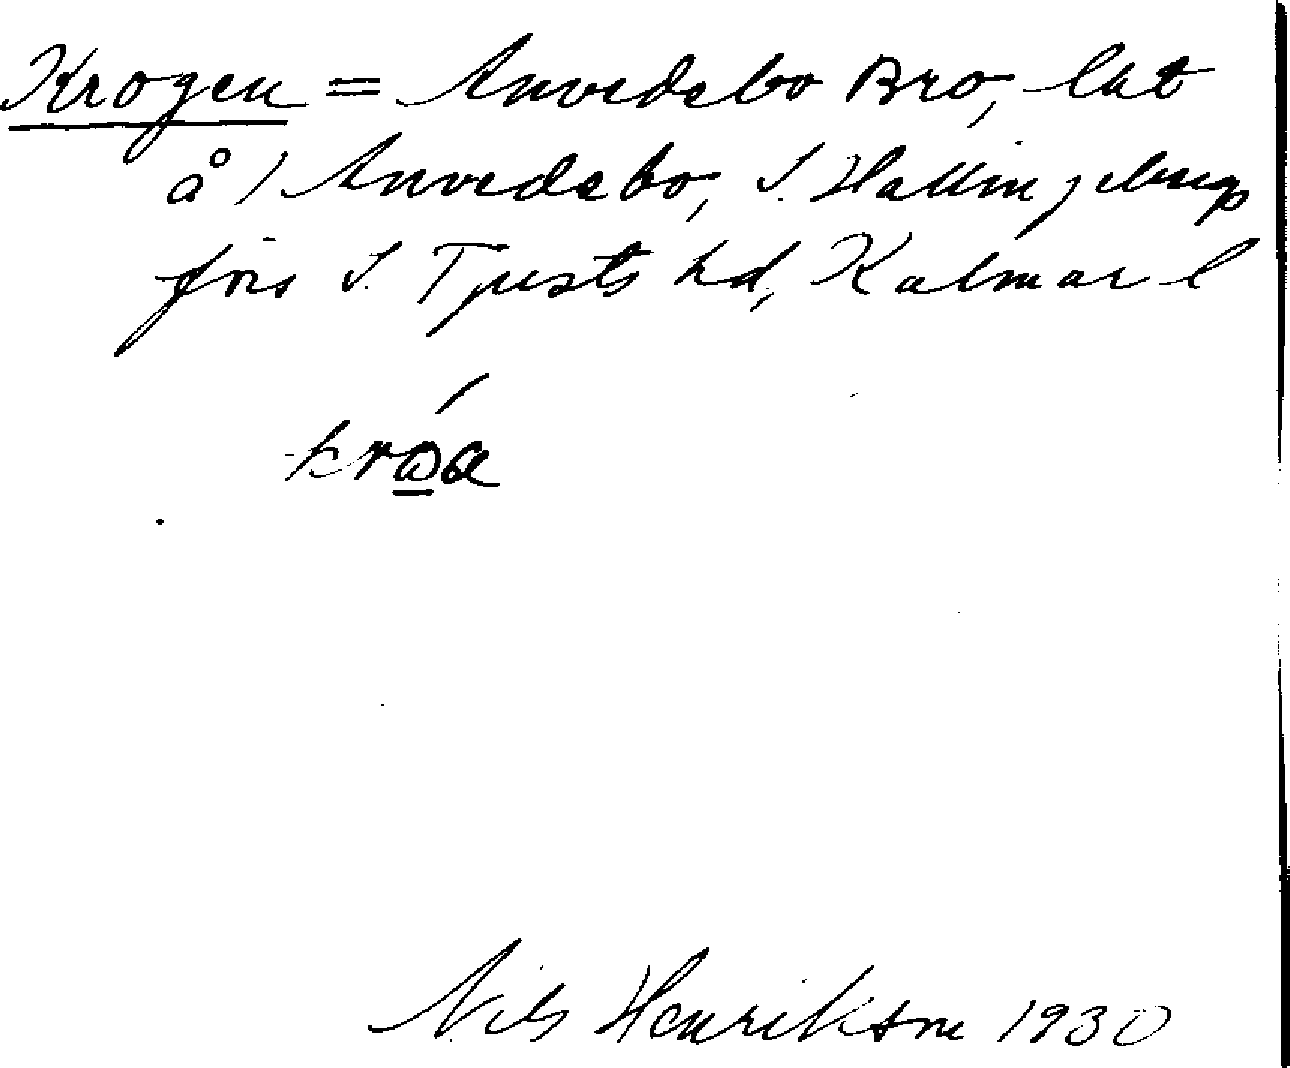 Krogen = Anvedebo Bro, låt
å) Anvedebo, S. Hallingebergs
förs S. Tjusts hd, Kalmar l
Nils Henrikson 1930